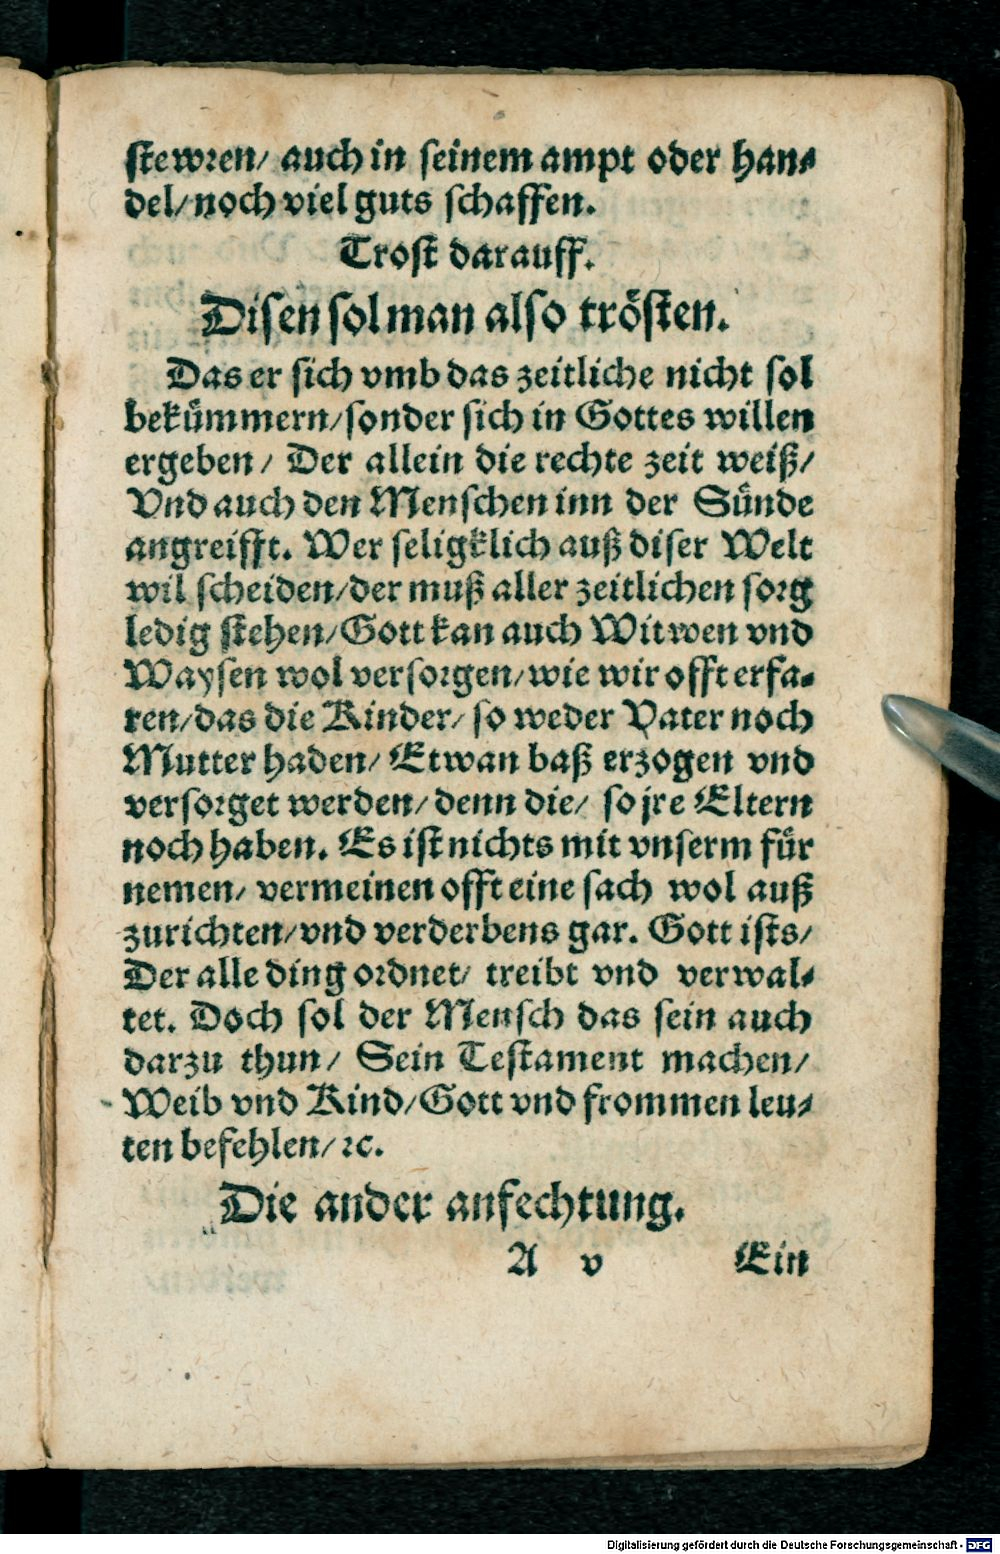 stewren/ auch in seinem ampt oder han-
del/ noch viel guts schaffen.
Trost darauff.
Disen sol man also trösten.
Das er sich vmb das zeitliche nicht sol
bekümmern/ sonder sich in Gottes willen
ergeben/ Der allein die rechte zeit weiß/
Vnd auch den Menschen inn der Sünde
angreifft. Wer seligklich auß diser Welt
wil scheiden/ der muß aller zeitlichen sorg
ledig stehen/ Gott kan auch Witwen vnd
Waysen wol versorgen/ wie wir offt erfa-
ren/ das die Kinder/ so weder Vater noch
Mutter haden/ Etwan baß erzogen vnd
versorget werden/ denn die/ so jre Eltern
noch haben. Es ist nichts mit vnserm für
nemen/ vermeinen offt eine sach wol auß
zurichten/ vnd verderbens gar. Gott ists/
Der alle ding ordnet/ treibt vnd verwal-
tet. Doch sol der Mensch das sein auch
darzu thun/ Sein Testament machen/
Weib vnd Kind/ Gott vnd frommen leu-
ten befehlen/ ꝛc.
Die ander anfechtung.
A v Ein
Digitalisierung gefördert durch die Deutsche Forschungsgemeinschaft - DFG